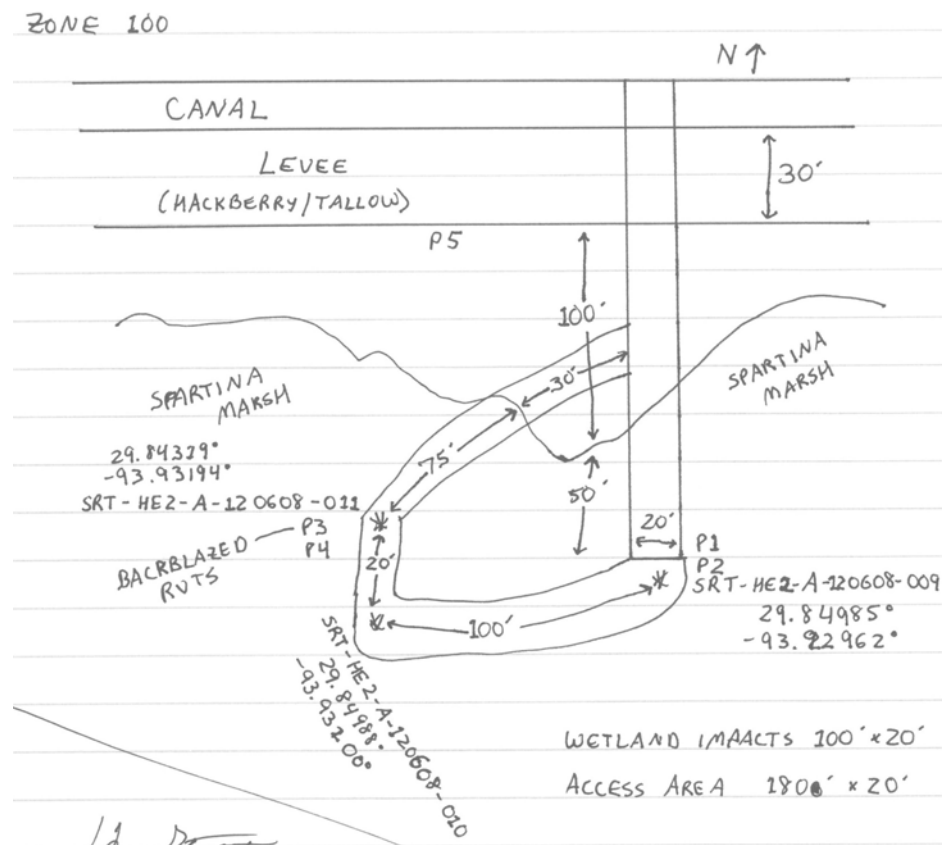 ZONE 100
N
CANAL
LEVEE
(HACKBERRY/TALLOW)
30'
P5
100'
30'
SPARTINA
MARSH
SPARTINA
MARSH
75'
29.84339°
-93.93194°
SRT-HE2-A-120608-011
50'
P3
P4
BACKBLAZED
RUTS
20'
20'
P1
P2
SRT-HE2-A-120608-009
29.84985°
-93.92962°
100'
SRT-HE2-A-120608-010
29.84988°
-93.93200°
WETLAND IMPACTS 100' x 20'
ACCESS AREA 180' x 20'